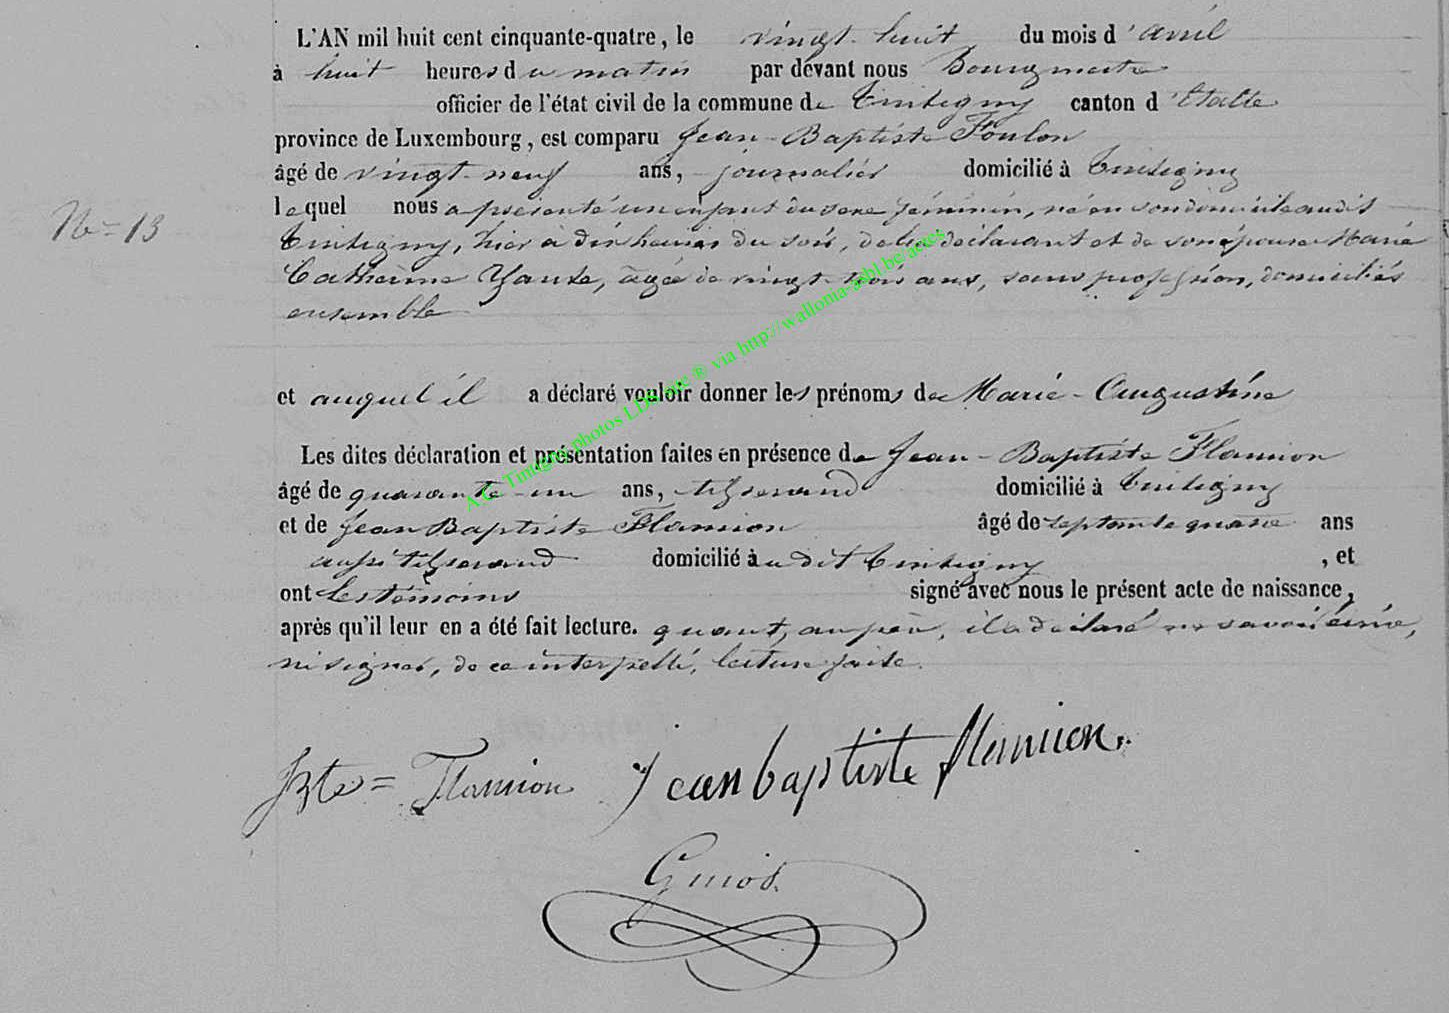 L'AN mil huit cent cinquante-quatre, le vingt-huit du mois d'avril
à huit heures du matin par dévant nous Bourgmestre
officier de l'état civil de la commune de Tintigny canton d'Etalle
province de Luxembourg, est comparu Jean-Baptiste Foulon
âgé de vingt-neuf ans, journalier domicilié à Tintigny
N° 13
lequel nous a présenté un enfant du sexe féminin, né en son domicile audit
Tintigny, hier à dix heures du soir, de lui déclarant et de son épouse Marie
Catherine âgée de vingt-trois ans, sans profession, domiciliés
ensemble
et auquel il a déclaré vouloir donner les prénoms de Marie-Augustine
Les dites déclaration et présentation faites en présence de Jean-Baptiste Flamion
âgé de quarante-un ans, tisserand domicilié à Tintigny
et de Jean Baptiste Flamion âgé de septante quatre ans
aussi tisserand domicilié audit Tintigny, et
ont les témoins signé avec nous le présent acte de naissance,
après qu'il leur en a été fait lecture. quant au père, il a déclaré ne savoir écrire,
ni signer, de ce interpellé, lecture faite.
JBte= Flamion Jean baptiste flamion.
Guiot
A.C. Tintigny photos LDS site ® via http://wallonia-asbl.be/actes